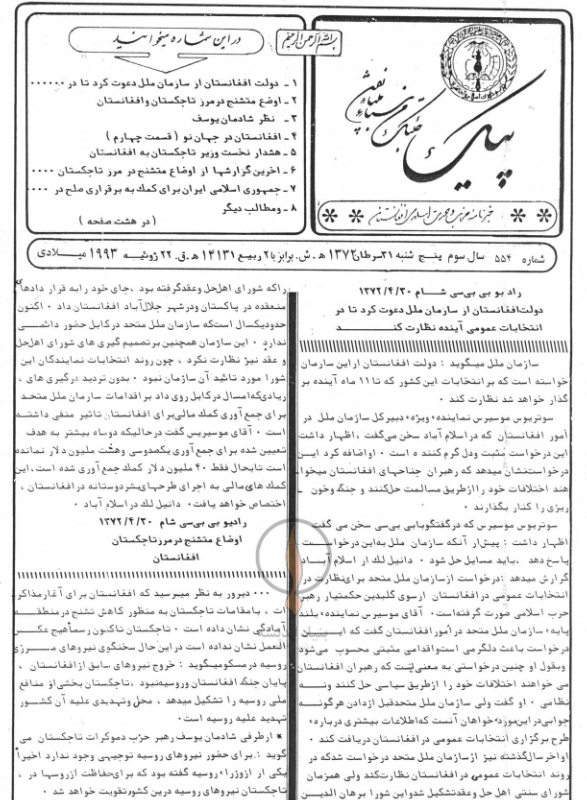 بسم الله الرحمن الرحیم
در این شماره میخوانید
۱ - دولت افغانستان از سازمان ملل دعوت کرد تا در ۰۰۰۰۰۰
۲ - اوضع متشنج در مرز تاجکستان وافغانستان
۳ - نظر شادمان یوسف
۴ - افغانستان در جهان نو ( قسمت چهارم )
۵ - هشدار نخست وزیر تاجکستان به افغانستان
۶ - اخرین گزارشها از اوضاع متشنج در مرز تاجکستان ۰۰۰۰
۷ - جمهوری اسلامی ایران برای کمك به برقراری صلح در ۰۰۰۰
۸ - ومطالب دیگر
( در هشت صفحه )
شماره ۵۵۴ سال سوم پنج شنبه ۳۱ سرطان ۱۳۷۲ ه . ش . برابر با ۲ ربیع ۱۴۱۳۱ ه . ق . ۲۲ ژوئیه ۱۹۹۳ میلادی
رادیو بی بی سی شام ۱۳۷۲/۴/۳۰
دولت افغانستان از سازمان ملل دعوت کرد تا در
انتخابات عمومی آینده نظارت کند
سازمان ملل میگوید : دولت افغانستان از این سازمان
خواسته است که بر انتخابات این کشور که تا ۱۱ ماه آینده بر
گذار خواهد شد نظارت کند ۰
سوتریوس موسیرس نماینده ویژه دبیر کل سازمان ملل در
امور افغانستان که در اسلام آباد سخن می گفت ، اظهار داشت
این درخواست مثبت ودل گرم کننده است ۰ او اضافه کرد این
درخواست نشان میدهد که رهبران جناحهای افغانستان میخوا
هند اختلافات خود را از طریق مسالمت حل کنند و جنگ وخون
ریزی را کنار بگذارند ۰
سوتریوس موسیرس که در گفتگوبایی بی سی سخن می گفت
اظهار داشت : پیش از آنکه سازمان ملل به این درخواست
پاسخ دهد ، باید مسایل حل شود ۰ دانیل لك از اسلام آباد
گزارش میدهد : درخواست از سازمان ملل متحد برای نظارت در
انتخابات عمومی در افغانستان از سوی گلبدین حکمتیار رهبر
حزب اسلامی صورت گرفته است ۰ آقای موسیرس نماینده بلند
پایه سازمان ملل متحد در امور افغانستان گفت که این
درخواست باعث دلگرمی است واقدامی مثبتی محسوب می شود
وبقول او چنین درخواستی به معنی است که رهبران افغانستان
می خواهند اختلافات خود را از طریق سیاسی حل کنند ونه
نظامی ۰ او گفت ولی سازمان ملل متحد قبل از دادن هر گونه
جوابی در این مورد خواهان آنست که اطلاعات بیشتری در باره
طرح برگزاری انتخابات عمومی در افغانستان دریافت کند ۰
اواخر سال گذشته نیز از سازمان ملل متحد درخواست شد که در
روند انتخابات عمومی در افغانستان نظارت کند ولی همزمان
شورای سنتی اهل حل وعقد تشکیل شد و این شورا برهان الدین
را که شورای اهل حل وعقد گرفته بود ، جای خود را به قرار دادها
منعقده در پاکستان ودر شهر جلال آباد افغانستان داد ۰ اکنون
حدود یکسال است که سازمان ملل متحد در کابل حضور دائمی
ندارد ۰ این سازمان همچنین بر تصمیم گیری های شورای اهل حل
و عقد نیز نظارت نکرد ، چون روند انتخابات نمایندگان این
شورا مورد تائید آن سازمان نبود ۰ بدون تردید درگیری های ،
زیادی که امسال در کابل روی داد بر اقدامات سازمان ملل متحد
برای جمع آوری کمك مالی برای افغانستان تاثیر منفی داشته
است ۰ آقای موسیرس گفت در حالیکه دو ماه بیشتر به هدف
تعیین شده برای جمع آوری یکصدوسی وهشت ملیون دلار نمانده
است تا بحال فقط ۴۰ ملیون دلار کمك جمع آوری شده است ، این
کمك های مالی به اجرای طرحهای بشر دوستانه در افغانستان ،
اختصاص خواهد یافت ۰ دانیل لك در اسلام آباد ۰
رادیو بی بی سی شام ۱۳۷۲/۴/۳۰
اوضاع متشنج در مرز تاجکستان
افغانستان
۰۰۰ دیروز به نظر میرسید که افغانستان برای آغاز مذاکر
ات ، با مقامات تاجکستان به منظور کاهش تشنج در منطقه
آمادگی نشان داده است ۰ تاجکستان تاکنون رسماً هیچ عکس
العمل نشان نداده است در این حال سخنگوی نیروهای مرزی
روسیه در مسکو میگوید : خروج نیروهای سابق از افغانستان ،
پایان جنگ افغانستان وروسیه نبود ، تاجکستان بخشی از منافع
ملی روسیه را تشکیل میدهد ، محل وتهدیدی علیه آن کشور
تهدید علیه روسیه است ۰
* از طرفی شادمان یوسف رهبر حزب دموکرات تاجکستان می
گوید : برای حضور نیروهای روسیه توجیهی وجود ندارد اخیراً
یکی از وزرا روسیه گفته بود که برای حفاظت از روسها در ،
تاجکستان نیروهای روسیه در این کشور تقویت خواهد شد ۰